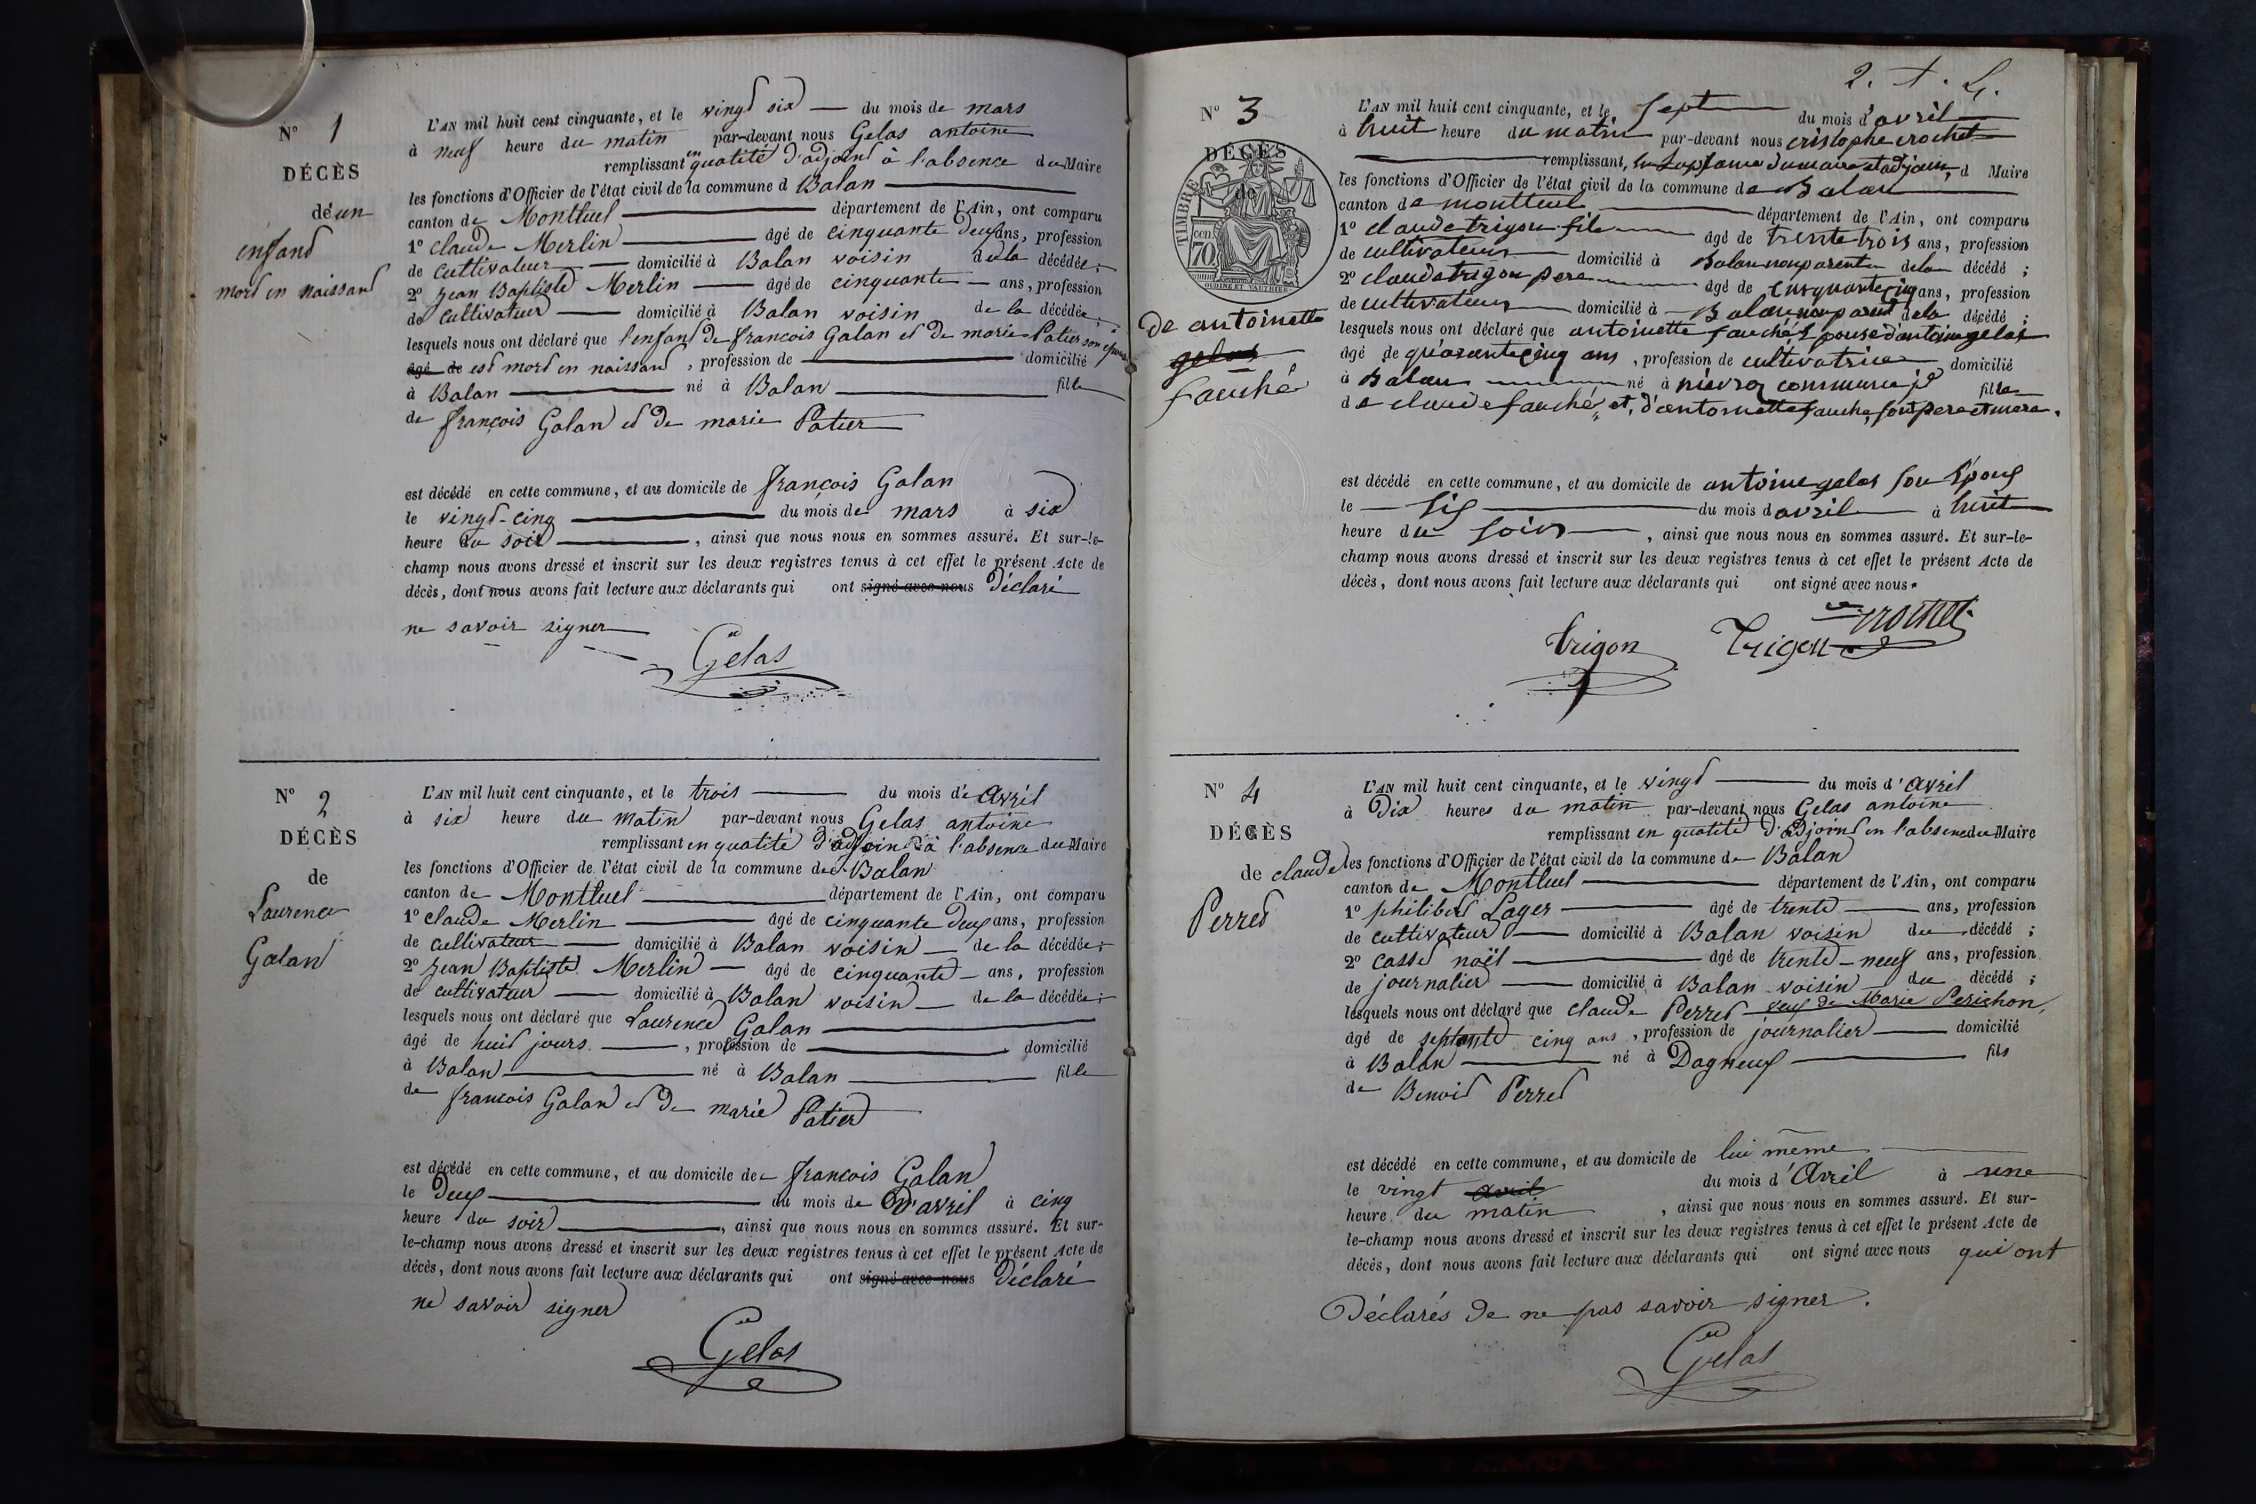 N° 1
DÉCÈS
de un
enfand
mord en naissand
L'AN mil huit cent cinquante, et le vingt six du mois de mars
à neuf heure du matin par-devant nous Gelas antoine
remplissant en qualité d'adjoint à l'absence du Maire
les fonctions d'Officier de l'état civil de la commune d Balan
canton de Montluel département de l'Ain, ont comparu
1° claude Merlin âgé de cinquante deux ans, profession
de cultivateur domicilié à Balan voisin de la décédée;
2° Jean Baptiste Merlin âgé de cinquante ans, profession
de cultivateur domicilié à Balan voisin de la décédée;
lesquels nous ont déclaré que l'enfant de francois Galan et de marie Patier son épouse
âgé de est mord en naissand, profession de domicilié
à Balan né à Balan fille
de françois Galan et de marie Patier
est décédé en cette commune, et au domicile de françois Galan
le vingt-cinq du mois de mars à six
heure du soir, ainsi que nous nous en sommes assuré. Et sur-le-
champ nous avons dressé et inscrit sur les deux registres tenus à cet effet le présent Acte de
décès, dont nous avons fait lecture aux déclarants qui ont signé avec nous Déclaré
ne savoir signer
Gelas
N° 2
DÉCÈS
de
Laurence
Galand
L'AN mil huit cent cinquante, et le trois du mois d'e Avril
à six heure du matin par-devant nous Gelas antoine
remplissant en qualité d'adjoin à l'absence du Maire
les fonctions d'Officier de l'état civil de la commune de Balan
canton de Montluel département de l'Ain, ont comparu
1° claude Merlin âgé de cinquante deux ans, profession
de cultivateur domicilié à Balan voisin de la décédée;
2° Jean Baptiste Merlin âgé de cinquante ans, profession
de cultivateur domicilié à Balan voisin de la décédée;
lesquels nous ont déclaré que Laurence Galan
âgé de huit jours, profession de domicilié
à Balan né à Balan fille
de francois Galan et de marie Patier
est décédé en cette commune, et au domicile de francois Galan
le Deux du mois de D'avril à cinq
heure du soir, ainsi que nous nous en sommes assuré. Et sur-
le-champ nous avons dressé et inscrit sur les deux registres tenus à cet effet le présent Acte de
décès, dont nous avons fait lecture aux déclarants qui ont signé avec nous Déclaré
ne savoir signer
Gelas
N° 3
DÉCÈS
de
TIMBRE
cen. 70
OUDINÉ ET VAUTHIER
de antoinette
gelas
fauché
L'AN mil huit cent cinquante, et le sept du mois d'avril
à huit heure du matin par-devant nous cristophe crochet
remplissant, du maire et adjoin, d Maire
les fonctions d'Officier de l'état civil de la commune de Balan
canton de montluel département de l'Ain, ont comparu
1° claude trigon fils âgé de trente trois ans, profession
de cultivateur domicilié à Balan non parent de la décédé;
2° claude trigon pere âgé de cinquante cinq ans, profession
de cultivateur domicilié à Balan non parent de la décédé;
lesquels nous ont déclaré que antoinette fauché épouse d'antoine gelas
âgé de quarante cinq ans, profession de cultivatrice domicilié
à Balan né à niévroz commune fille
de claude fauché, et, d'antoinette fauche, sont pere et mere.
est décédé en cette commune, et au domicile de antoine gelas son Époux
le six du mois d avril à huit
heure du soir, ainsi que nous nous en sommes assuré. Et sur-le-
champ nous avons dressé et inscrit sur les deux registres tenus à cet effet le présent Acte de
décès, dont nous avons fait lecture aux déclarants qui ont signé avec nous.
crochet
trigon Trigon
N° 4
DÉCÈS
de claude
Perred
L'AN mil huit cent cinquante, et le vingt du mois d'Avril
à Dix heures du matin par-devant nous Gelas antoine
remplissant en qualité d'adjoint en l'absence du Maire
les fonctions d'Officier de l'état civil de la commune de Balan
canton de Montluel département de l'Ain, ont comparu
1° philiberd Lager âgé de trente ans, profession
de cultivateur domicilié à Balan voisin du décédé;
2° casse noël âgé de trente-neuf ans, profession
de journalier domicilié à Balan voisin du décédé;
lesquels nous ont déclaré que claude Perred veuf de Marie Perichon,
âgé de septante cinq ans, profession de journalier domicilié
à Balan né à Dagneux fils
de Benoid Perred
est décédé en cette commune, et au domicile de lui même
le vingt avril du mois d'Avril à une
heure du matin, ainsi que nous nous en sommes assuré. Et sur-
le-champ nous avons dressé et inscrit sur les deux registres tenus à cet effet le présent Acte de
décès, dont nous avons fait lecture aux déclarants qui ont signé avec nous qui ont
Déclarés de ne pas savoir signer.
Gelas